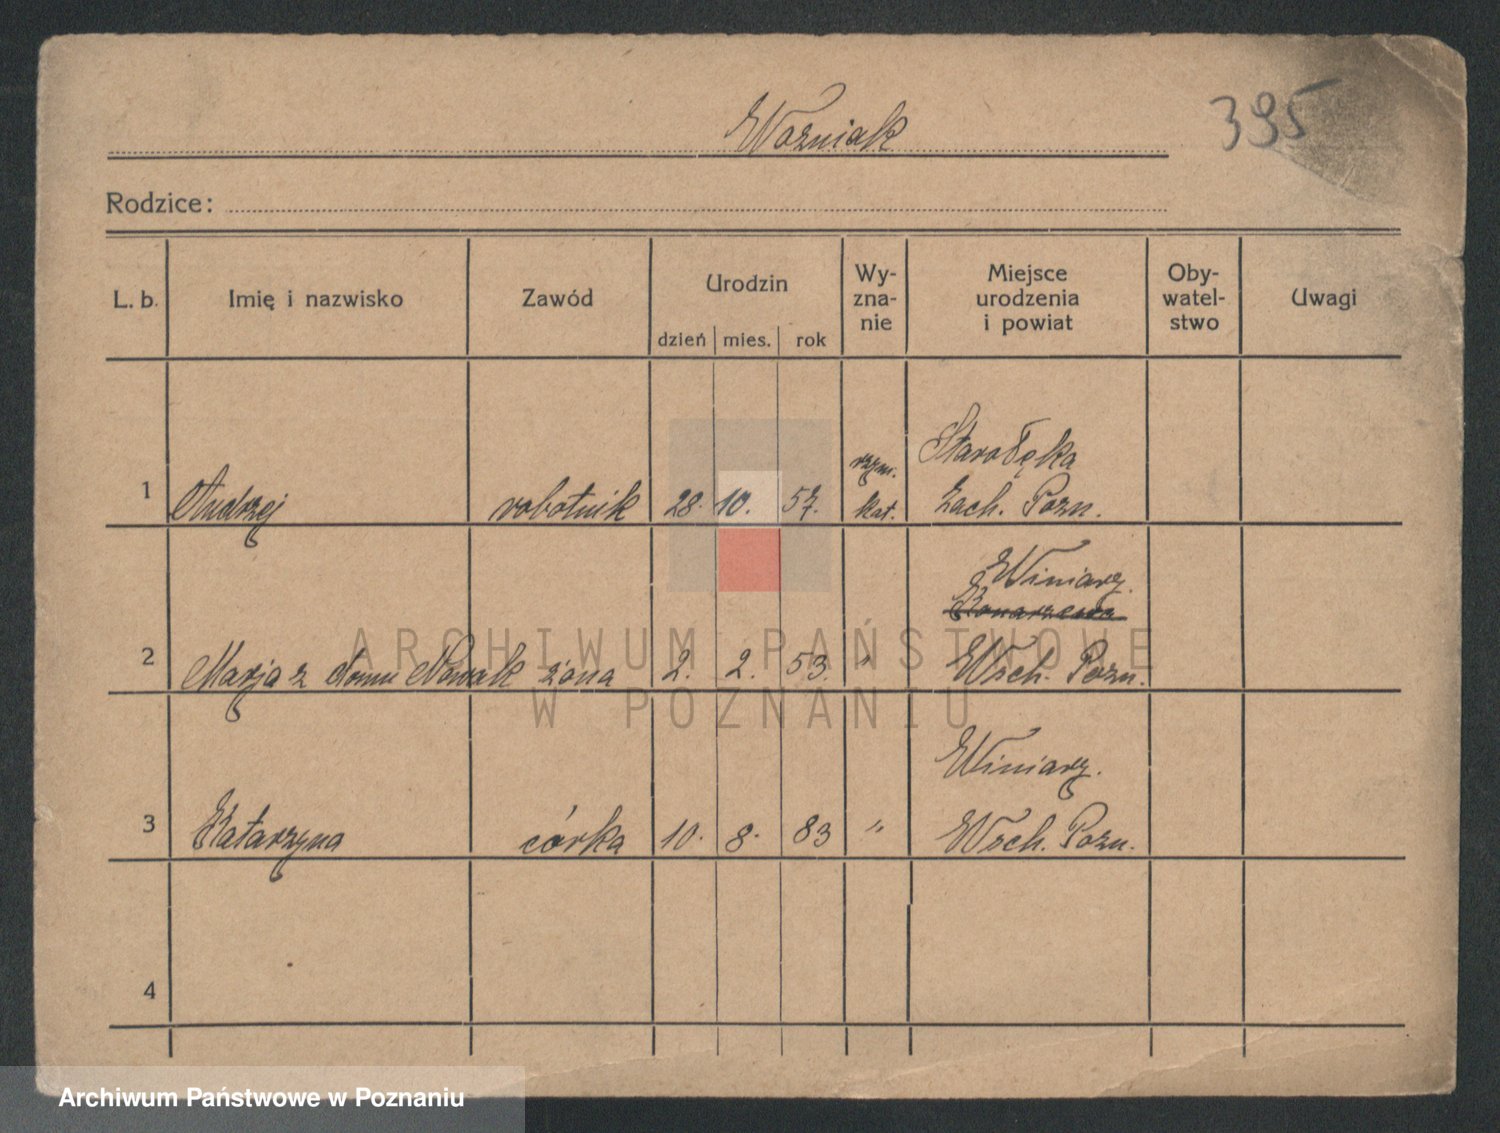 Woźniak
395
Rodzice:
L. b. Imię i nazwisko Zawód Urodzin dzień mies. rok Wy-zna-nie Miejsce urodzenia i powiat Oby-watel-stwo Uwagi
Starołęka
rzym.
1 Andrzej robotnik 28. 10. 57. kat. Zach. Pozn.
Winiary.
Konarzewo
2 Marja z domu Nowak żona 2. 2. 53. " Wsch. Pozn.
Winiary.
3 Katarzyna córka 10. 8. 83 " Wsch. Pozn.
4
ARCHIWUM PAŃSTWOWE
W POZNANIU
Archiwum Państwowe w Poznaniu